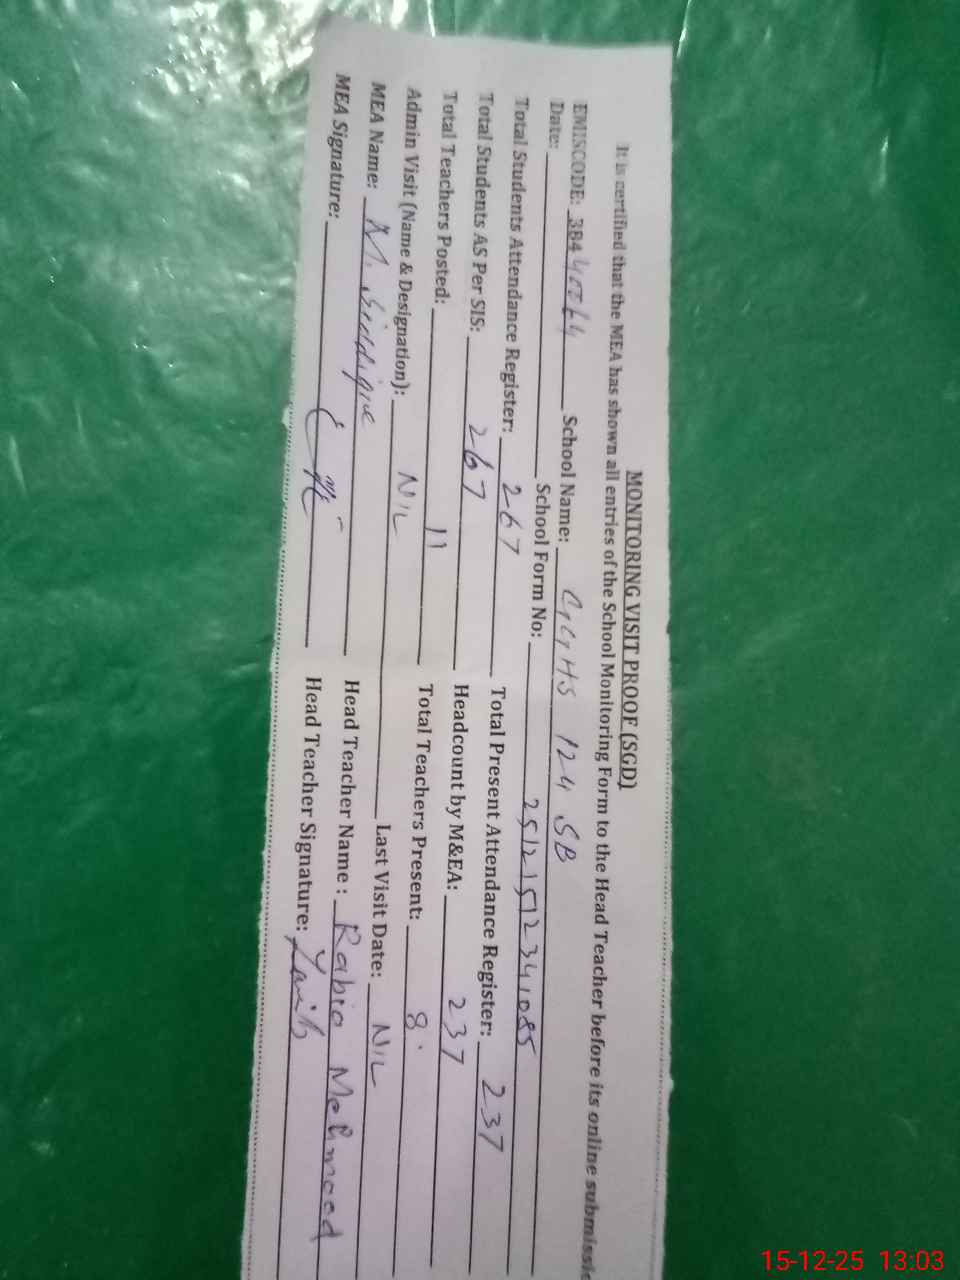 MONITORING VISIT PROOF (SGD)
It is certified that the MEA has shown all entries of the School Monitoring Form to the Head Teacher before its online submissio
EMISCODE: 38440064 School Name: GGHS 124 SB
Date: School Form No: 25121512341085
Total Students Attendance Register: 267 Total Present Attendance Register: 237
Total Students AS Per SIS: 267 Headcount by M&EA: 237
Total Teachers Posted: 11 Total Teachers Present: 8
Admin Visit (Name & Designation): NIL Last Visit Date: NIL
MEA Name: M. Siddique Head Teacher Name: Rabia Mehmood
MEA Signature: Head Teacher Signature:
15-12-25 13:03